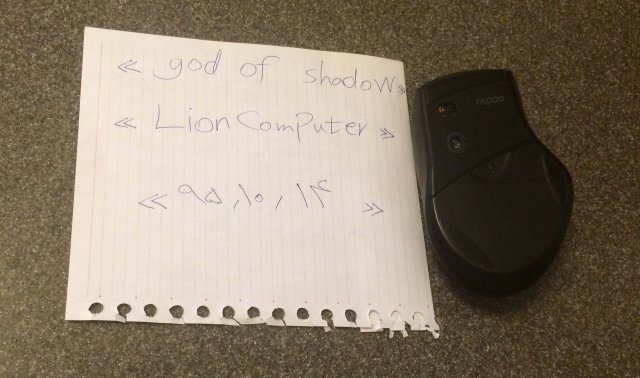 « god of shadow »
« Lion Computer »
« ۹۵,۱۰,۱۴ »
rapoo